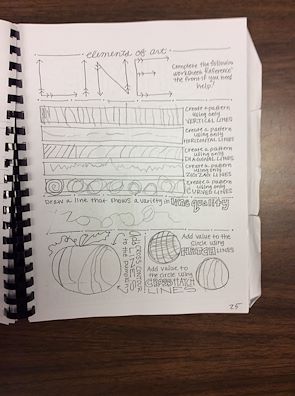 elements of art:
LINE
Complete the following
worksheet. Reference
the front if you need
help!
Create a pattern
using only
VERTICAL LINES
Create a pattern
using only
HORIZONTAL LINES
Create a pattern
using only
DIAGONAL LINES
Create a pattern
using only
ZIG ZAG LINES
Create a pattern
using only
CURVED LINES
Draw a line that shows a variety in line quality
Add CROSS CONTOUR
LINES
to the pumpkin
Add value to the
circle using
HATCH LINES
Add value to
the circle using
CROSS HATCH
LINES
25